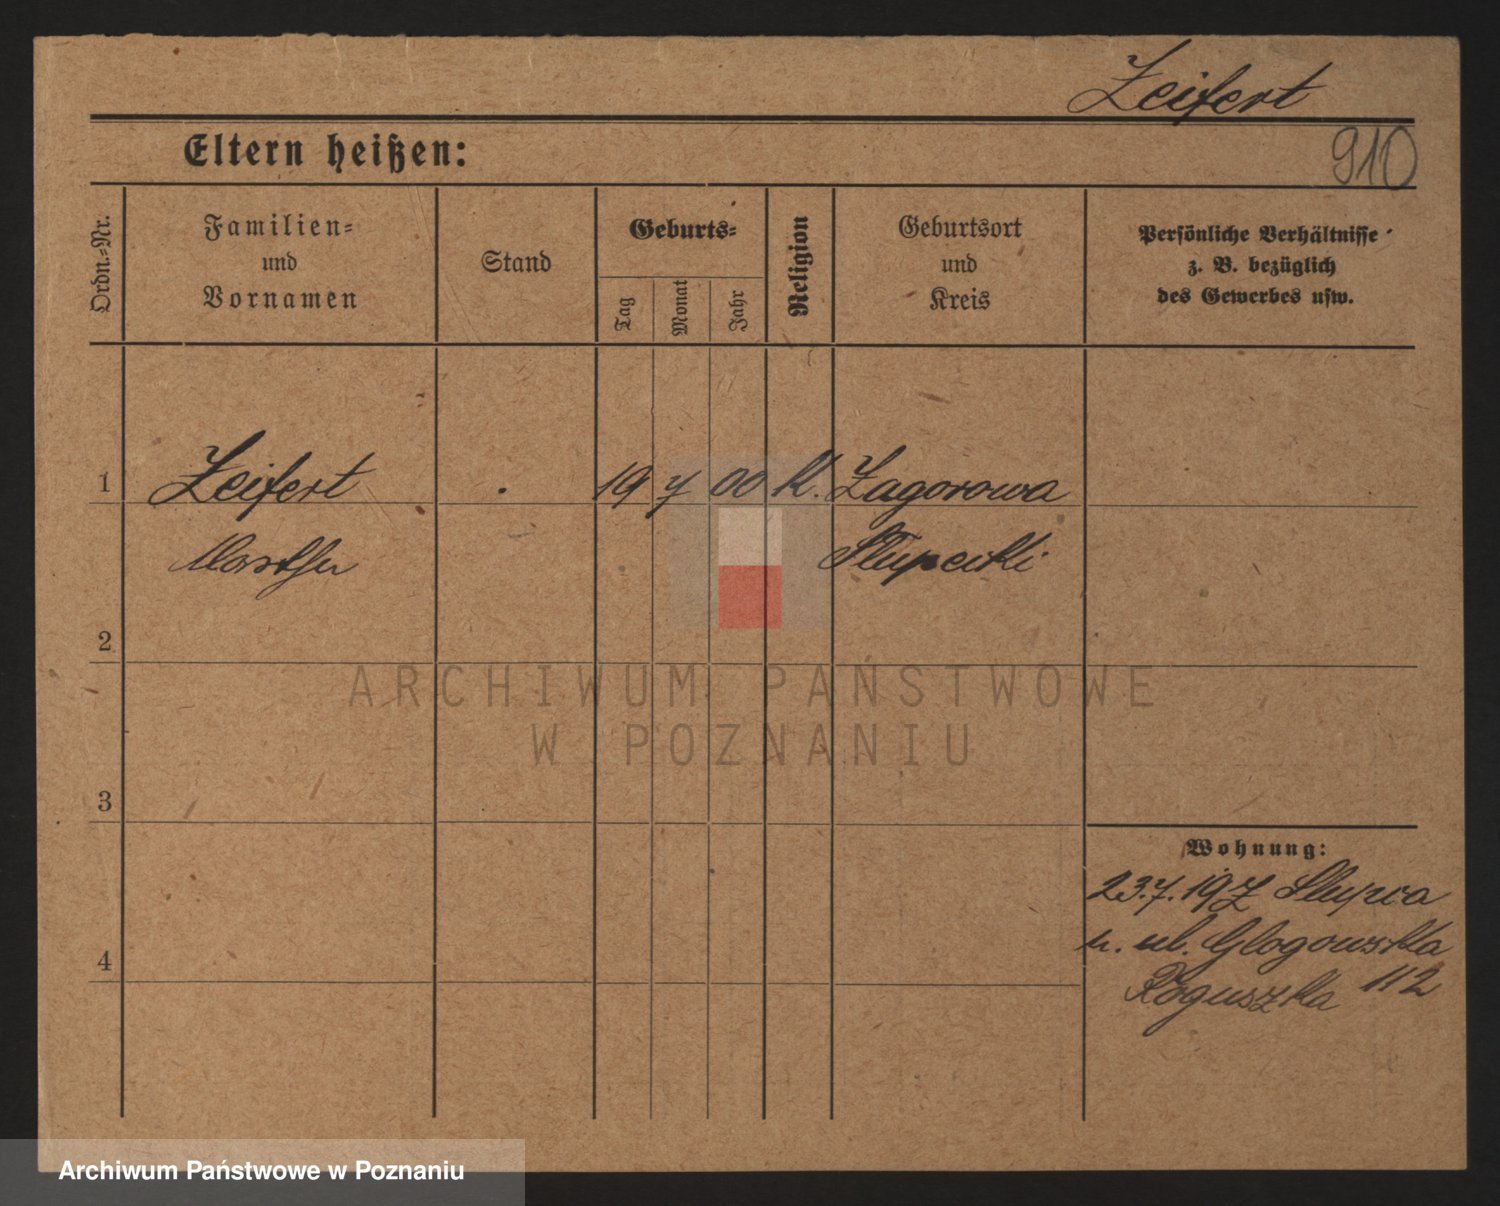 Zeifert
910
Eltern heißen:
Ordn.-Nr.
Familien-
und
Vornamen
Stand
Geburts-
Tag
Monat
Jahr
Religion
Geburtsort
und
Kreis
Persönliche Verhältnisse
z. B. bezüglich
des Gewerbes usw.
1 Zeifert 19 7 00 k. Zagorowa
Słupecki
2
3
Wohnung:
23.7.19 Słupca
u. ul. Glogowska
4
112
ARCHIWUM PAŃSTWOWE
W POZNANIU
Archiwum Państwowe w Poznaniu